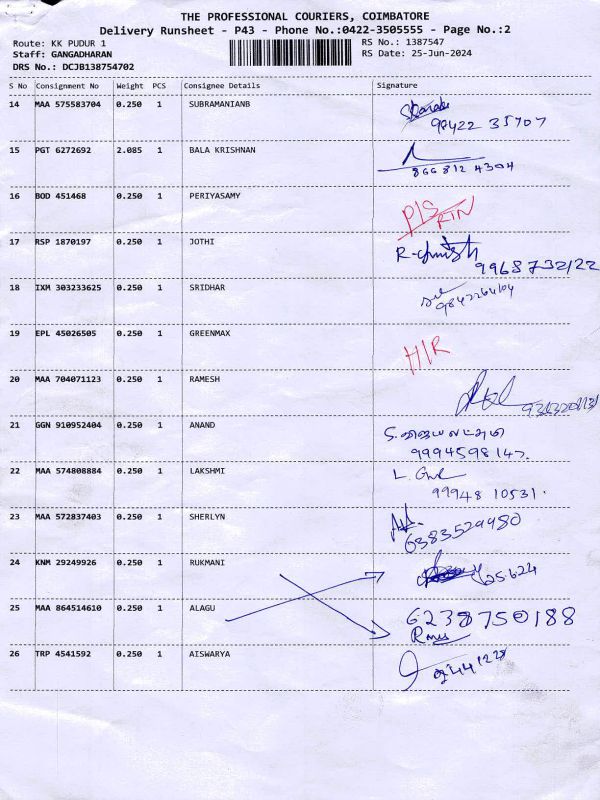 THE PROFESSIONAL COURIERS, COIMBATORE
Delivery Runsheet - P43 - Phone No.:0422-3505555 - Page No.:2
Route: KK PUDUR 1 RS No.: 1387547
Staff: GANGADHARAN RS Date: 25-Jun-2024
DRS No.: DCJB138754702
S No Consignment No Weight PCS Consignee Details Signature
14 MAA 575583704 0.250 1 SUBRAMANIANB
98422 35707
15 PGT 6272692 2.085 1 BALA KRISHNAN
866 812 4304
16 BOD 451468 0.250 1 PERIYASAMY
P/S
RTN
17 RSP 1870197 0.250 1 JOTHI
9968732122
18 IXM 303233625 0.250 1 SRIDHAR
9842264104
19 EPL 45026505 0.250 1 GREENMAX
H/R
20 MAA 704071123 0.250 1 RAMESH
21 GGN 910952404 0.250 1 ANAND
S. ஜெயலட்சுமி
9994598147.
22 MAA 574808884 0.250 1 LAKSHMI
99948 10531.
23 MAA 572837403 0.250 1 SHERLYN
6383529980
24 KNM 29249926 0.250 1 RUKMANI
25.6.24
25 MAA 864514610 0.250 1 ALAGU
6238750188
26 TRP 4541592 0.250 1 AISWARYA